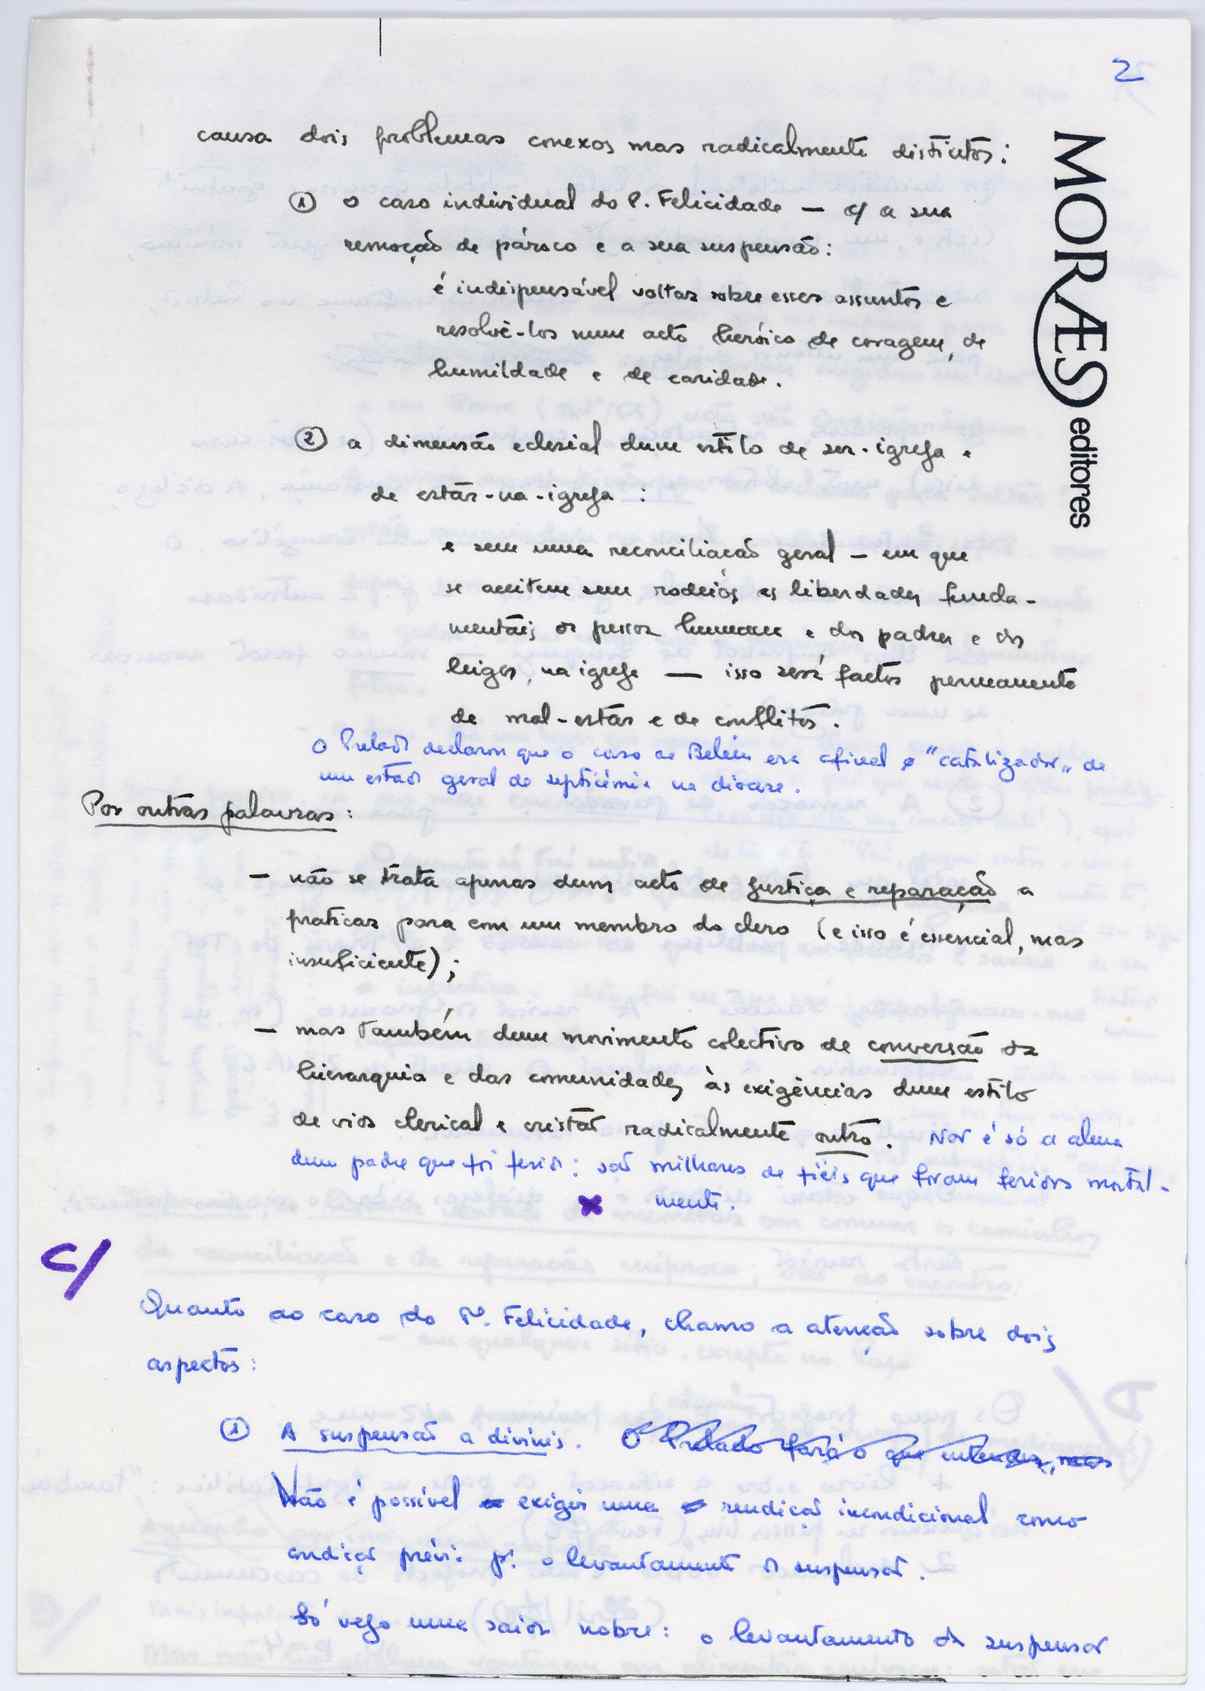 2
MORÆS editores
causa dois problemas conexos mas radicalmente distintos:
① o caso individual do P. Felicidade — c/ a sua
remoção de pároco e a sua suspensão:
é indispensável voltar sobre esses assuntos e
resolvê-los num acto heróico de coragem, de
humildade e de caridade.
② a dimensão eclesial dum estilo de ser-igreja e
de estar-na-igreja :
e sem uma reconciliação geral — em que
se aceitem sem rodeios as liberdades funda-
mentais da pessoa humana e dos padres e dos
leigos, na igreja — isso será factor permanente
de mal-estar e de conflitos.
O Prelado declarou que o caso de Belém era afinal o "catalizador" de
um estado geral de septicémia na diocese.
Por outras palavras:
— não se trata apenas dum acto de justiça e reparação a
praticar para com um membro do clero (e isso é essencial, mas
insuficiente);
— mas também dum movimento colectivo de conversão da
hierarquia e das comunidades às exigências dum estilo
de vida clerical e cristão radicalmente outro. Não é só a alma
dum padre que foi ferida: são milhares de fiéis que foram feridos mortal-
mente.
C/
Quanto ao caso do P. Felicidade, chamo a atenção sobre dois
aspectos:
① A suspensão a divinis. O Prelado fará o que entender, mas
Não é possível exigir uma rendição incondicional como
condição prévia p.ª o levantamento da suspensão.
Só vejo uma saída nobre: o levantamento da suspensão